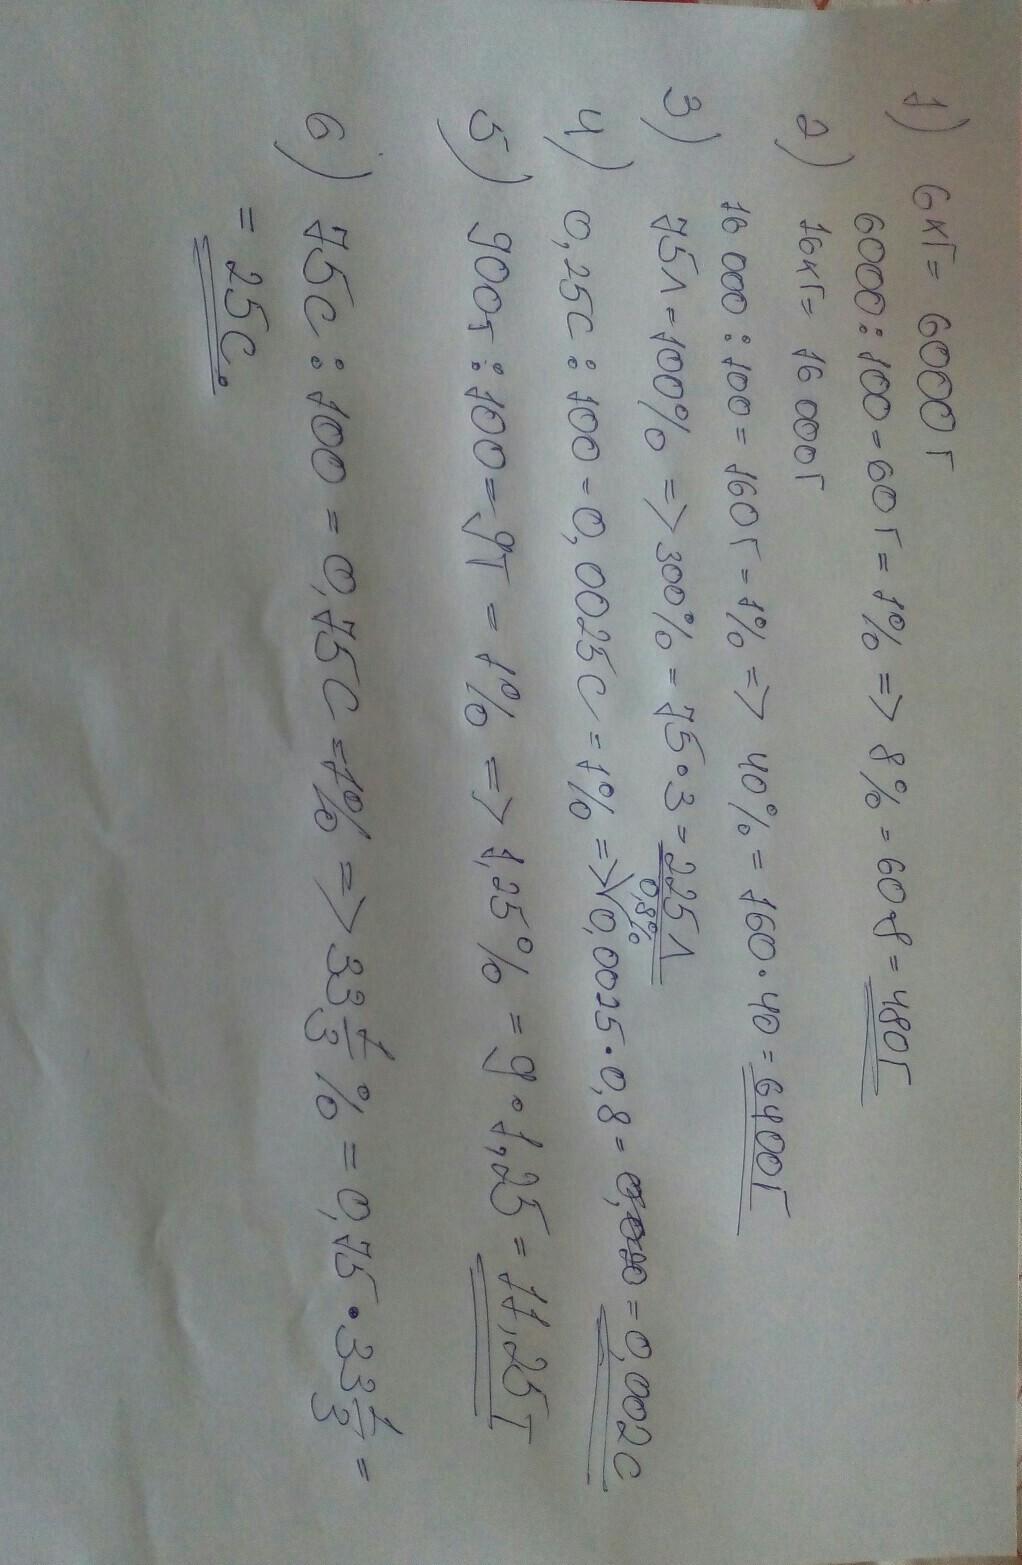 1) 6кг = 6000г
6000 : 100 = 60г = 1% => 8% = 60·8 = 480г
2) 16кг = 16 000г
16 000 : 100 = 160г = 1% => 40% = 160·40 = 6400г
3) 75л = 100% => 300% = 75·3 = 225л
0,8%
4) 0,25с : 100 = 0,0025с = 1% => 0,0025·0,8 = = 0,002с
5) 900т : 100 = 9т = 1% => 1,25% = 9·1,25 = 11,25т
6) 75с : 100 = 0,75с = 1% => 33 1/3 % = 0,75·33 1/3 =
= 25с.